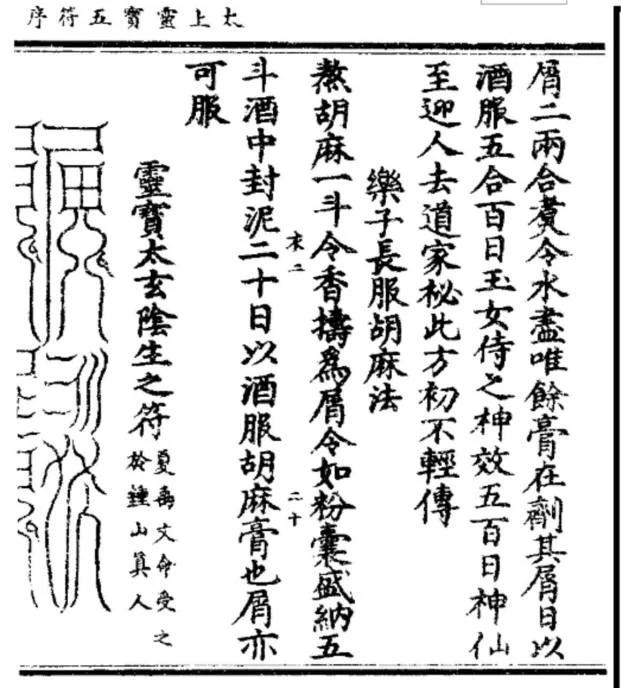 太上靈寶五符序
屑二兩合煑令水盡唯餘膏在劑其屑日以
酒服五合百日玉女侍之神效五百日神仙
至迎人去道家秘此方初不輕傳
樂子長服胡麻法
熬胡麻一斗令香擣爲屑令如粉囊盛納五
衣二 二十
斗酒中封泥二十日以酒服胡麻膏也屑亦
可服
靈寶太玄陰生之符
夏禹文命受之
於鍾山真人